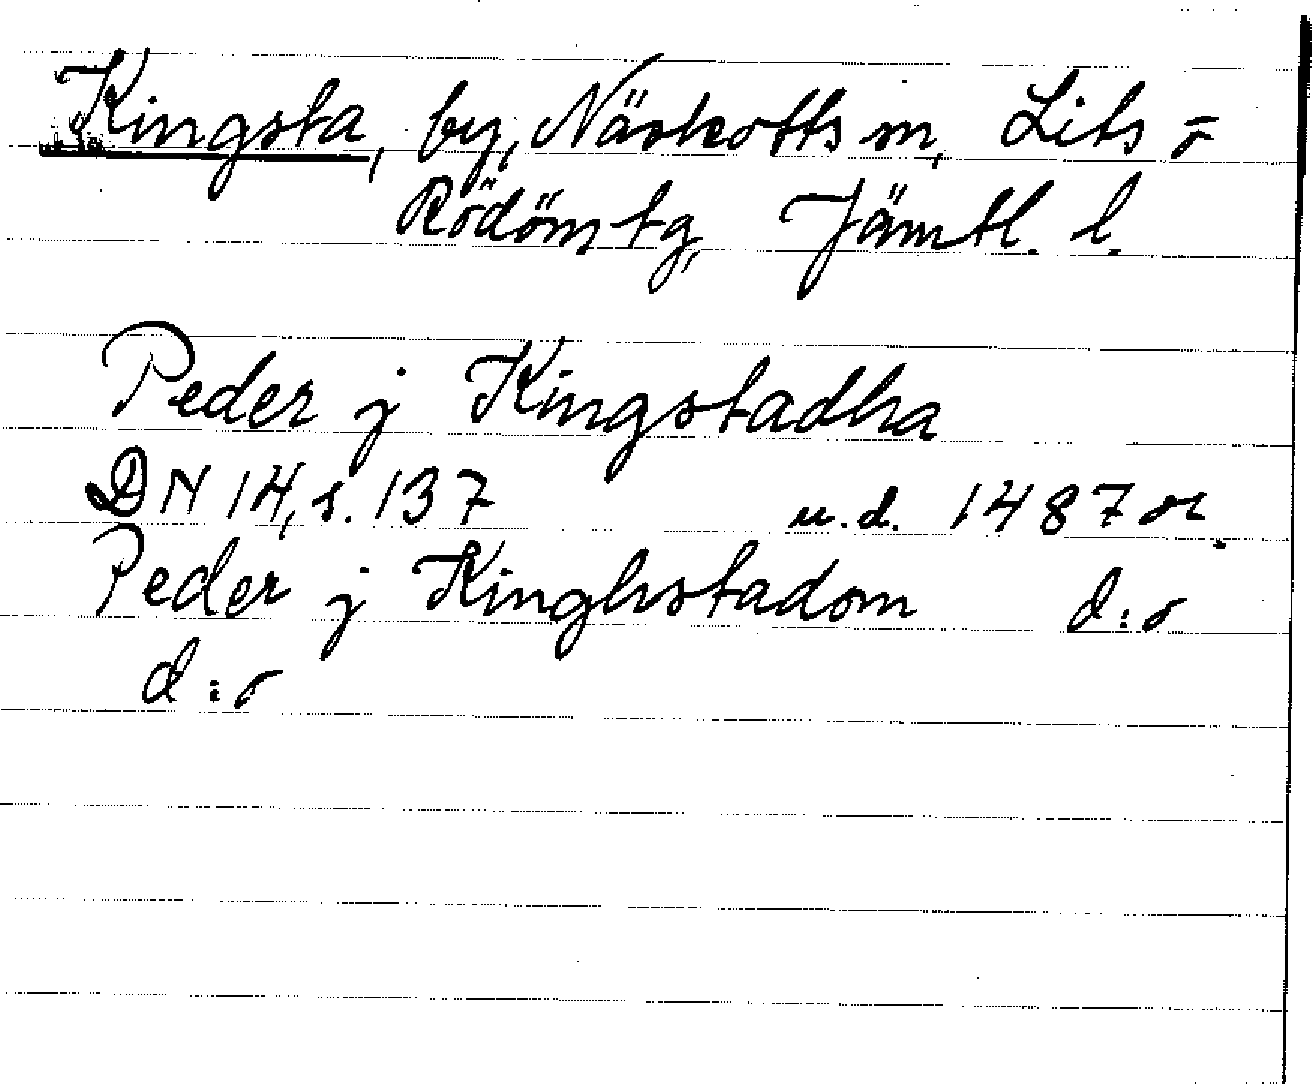 Kingsta, by, Näskotts sn, Lits o
Rödöns tg, Jämtl. l.
Peder j Kingstadha
DN 14, s. 137 u.d. 1487 or.
Peder j Kinghstadom d:o
d:o